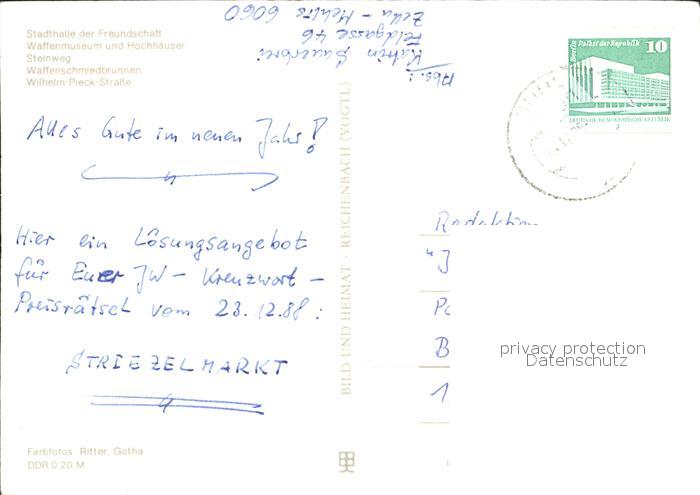 Stadthalle der Freundschaft
Waffenmuseum und Hochhäuser
Steinweg
Waffenschmiedbrunnen
Wilhelm-Pieck-Straße
Abs.:
Katrin Sauerbrei
Feldgasse 46
Zella - Mehlis 6060
Berlin Palast der Republik 10
DEUTSCHE DEMOKRATISCHE REPUBLIK
Alles Gute im neuen Jahr!
Hier ein Lösungsangebot
für Euer JW - Kreuzwort -
Preisrätsel vom 23.12.88 :
STRIEZELMARKT
BILD UND HEIMAT · REICHENBACH (VOGTL)
Redaktion
"J
B
1
privacy protection
Datenschutz
Farbfotos Ritter, Gotha
DDR 0,20 M